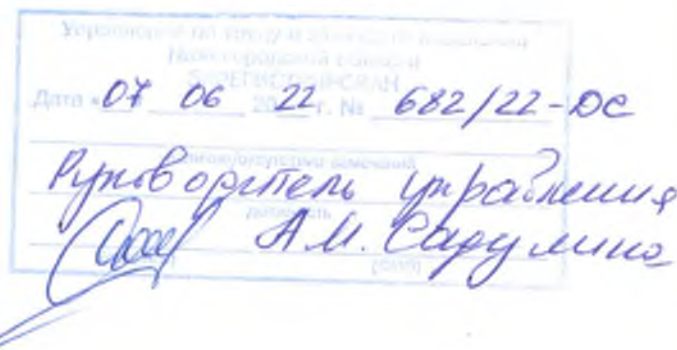 Управление по труду и занятости населения
Нижегородской области
ЗАРЕГИСТРИРОВАН
Дата «07 06 2022 г. № 682/22-ДС
замечаний
Руководитель управления
должность
А.М. Садулина
(ФИО)